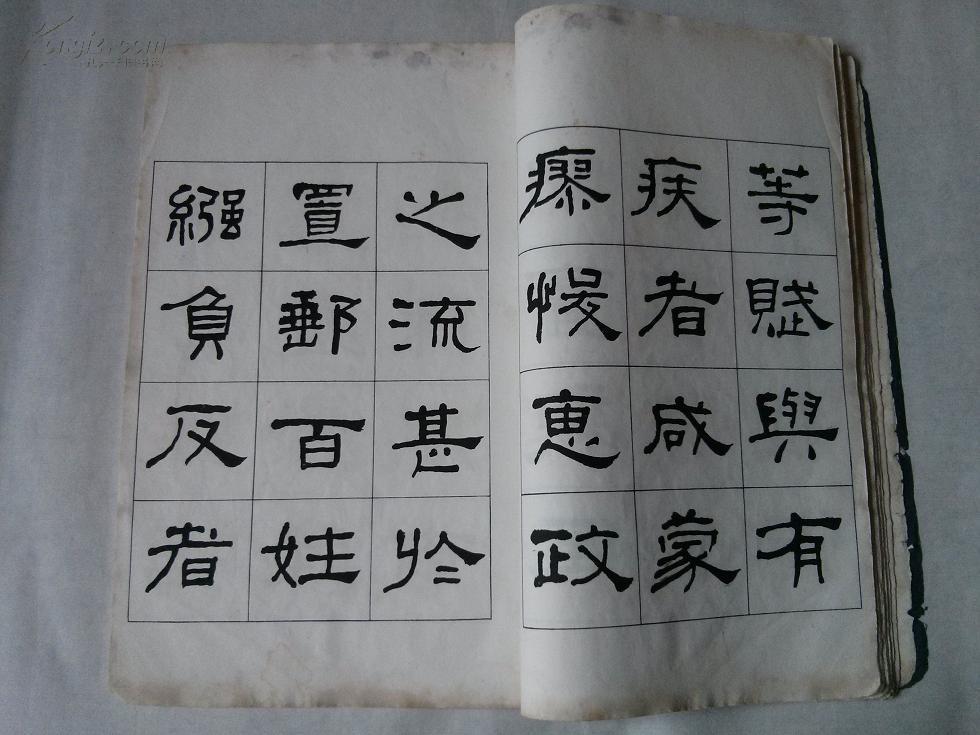 等賦與有
疾者咸蒙
瘳悛惠政
之流甚於
置郵百姓
繈負反者